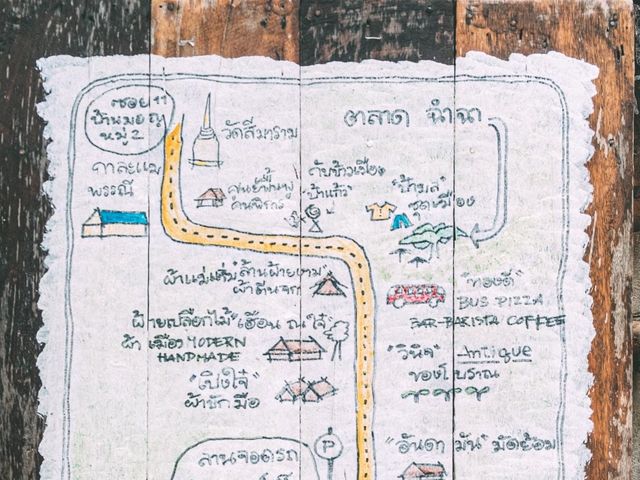 ซอย 11
หมู่ 2
วัดสีมาราม
ตลาด ฉำฉา
กาละแม
พรรณี
ศูนย์ฟื้นฟู
คนพิการ
กับข้าวเมือง
"ป้าแก้ว"
ชุดเมือง
ผ้าตีนจก
ฝ้ายเปลือกไม้
ผ้าเมือง MODERN
HANDMADE
"เฮือน ณ ใจ๋"
"เปิงใจ๋"
ผ้าซักมือ
"ทองดี"
BUS PIZZA
BAR-BARISTA COFFEE
"วินิจ" Antique
ของโบราณ
"อันดา มัน" มัดย้อม
ลานจอดรถ
P